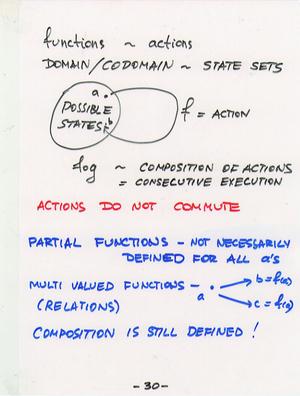 functions ~ actions
DOMAIN/CODOMAIN ~ STATE SETS
a .
POSSIBLE
STATES
b
f = ACTION
fog ~ COMPOSITION OF ACTIONS
= CONSECUTIVE EXECUTION
ACTIONS DO NOT COMMUTE
PARTIAL FUNCTIONS - NOT NECESSARILY
DEFINED FOR ALL a's
MULTI VALUED FUNCTIONS - a b = f(a)
(RELATIONS) c = f(a)
COMPOSITION IS STILL DEFINED !
- 30 -